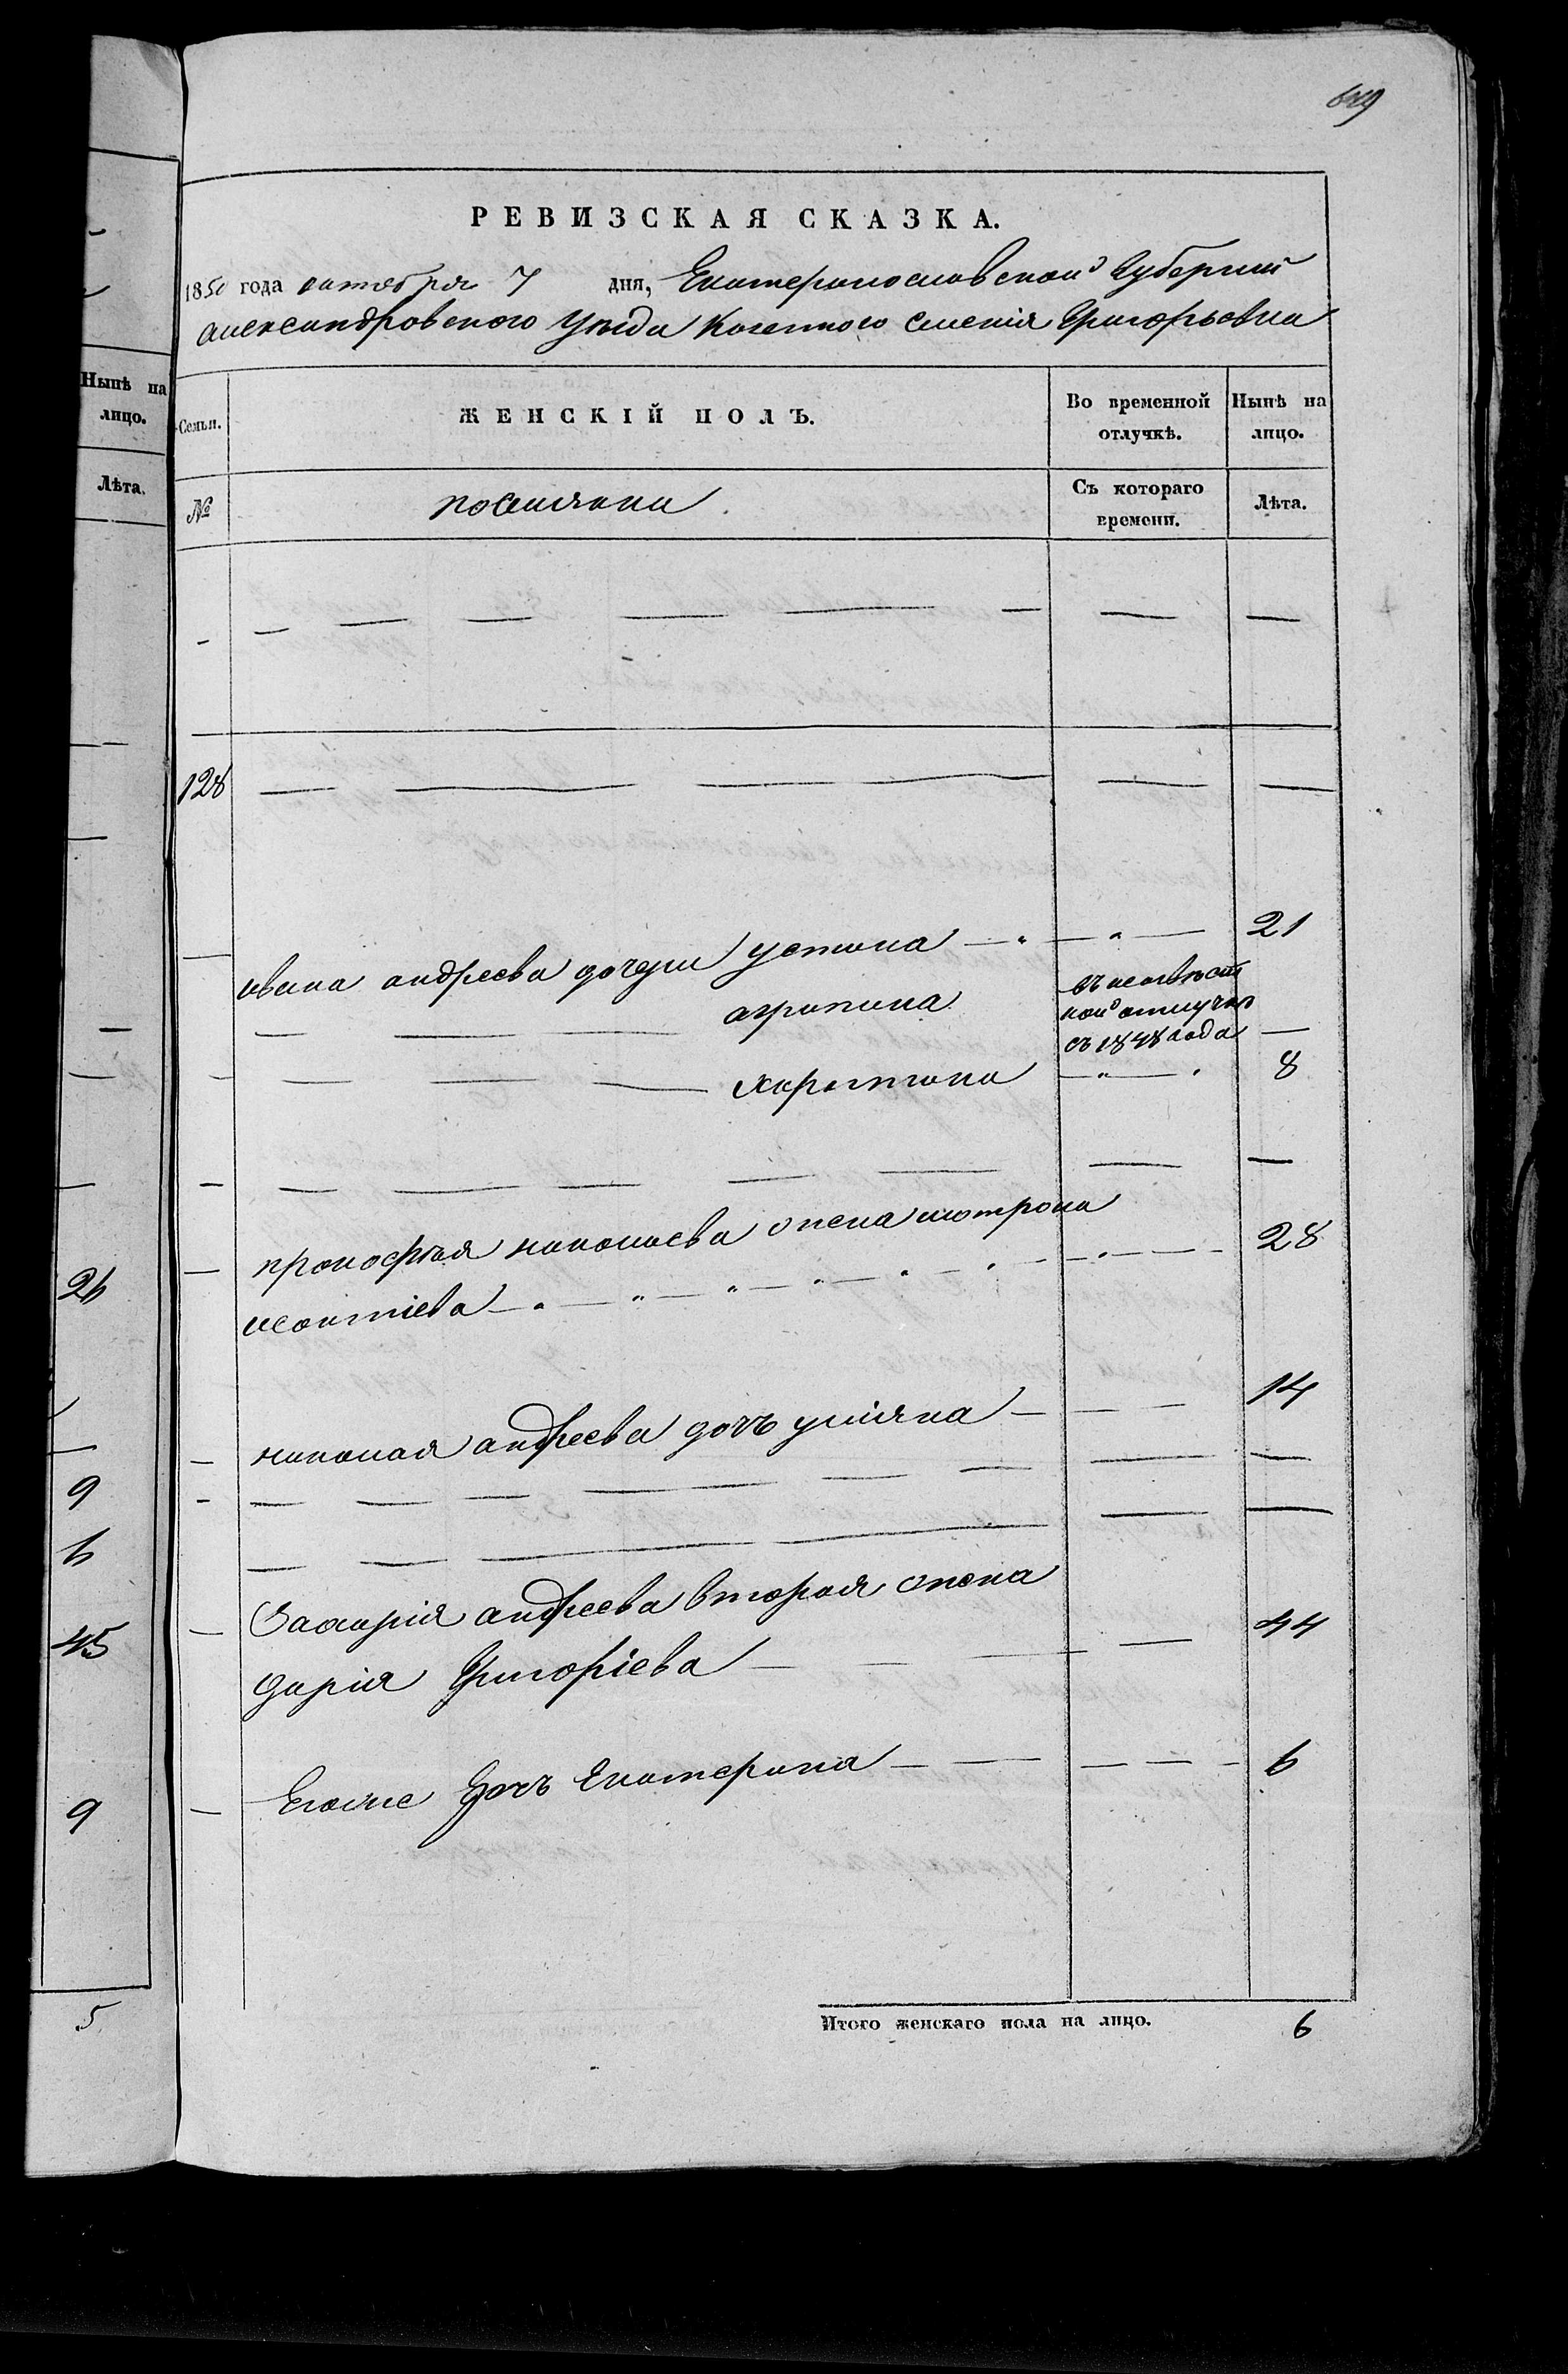 649
РЕВИЗСКАЯ СКАЗКА.
1850 года октября 7 дня, Екатеринославской Губернии
александровского Уезда Казенного селенія Григорьевка
Ныпѣ на лицо.
Лѣта.
26
9
6
45
9
5
Семьи.
ЖЕНСКІЙ ПОЛЪ.
Во временной отлучкѣ.
Нынѣ на лицо.
№
поселянки
Съ котораго времени.
Лѣта.
128
ивана андреева дочери устина 21
агрипина въ неизвѣст
ной отлучке
съ 1848 года
харитина 8
прокофья николаева жена мотрона
леонтіева 28
николая андреева дочь уліяна 14
Захарія андреева вторая жена
дарія Григоріева 44
Егоже дочь Екатерина 6
Итого женскаго пола на лицо. 6